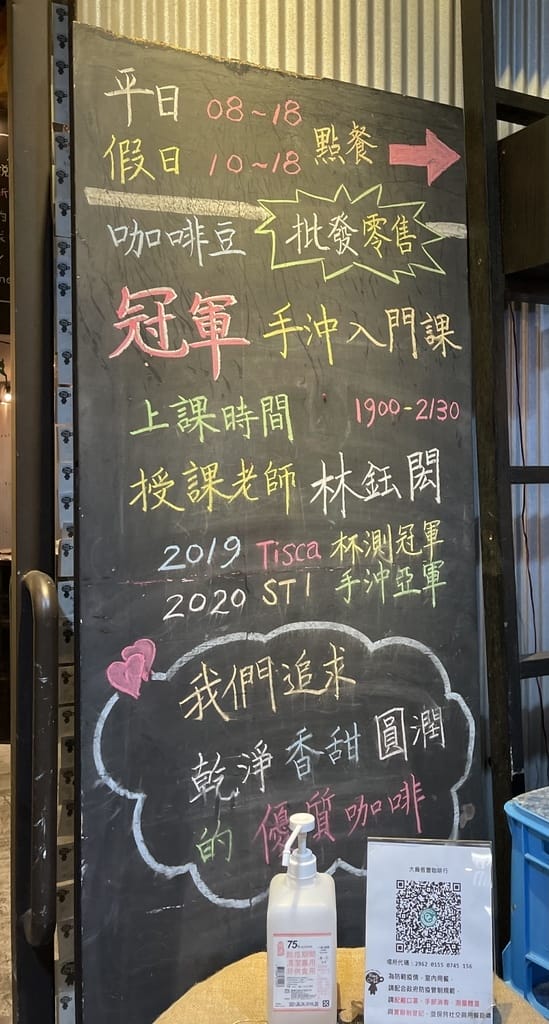 平日 08~18
假日 10~18 點餐
咖啡豆 批發零售
冠軍 手沖入門課
上課時間 1900-2130
授課老師 林鈺閎
2019 Tisca 杯測冠軍
2020 STI 手沖亞軍
我們追求
乾淨香甜圓潤
的 優質咖啡
75%
防疫期間
清潔專用
非供食用
場所代碼：2962 0155 0745 156
為防範疫情，室內用餐，
請配合政府防疫管制規範，
請配戴口罩、手部消毒、測量體溫